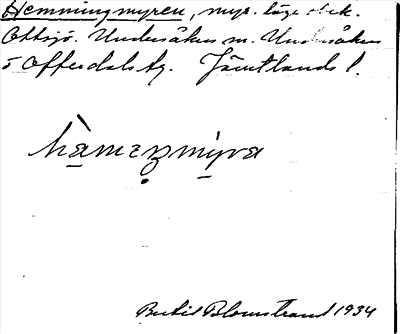 Hemmingmyren, myr. läge obek.
Ottsjö. Undersåkers sn. Undersåkers
o Offerdals tg. Jämtlands l.
Bertil Blomstrand 1934